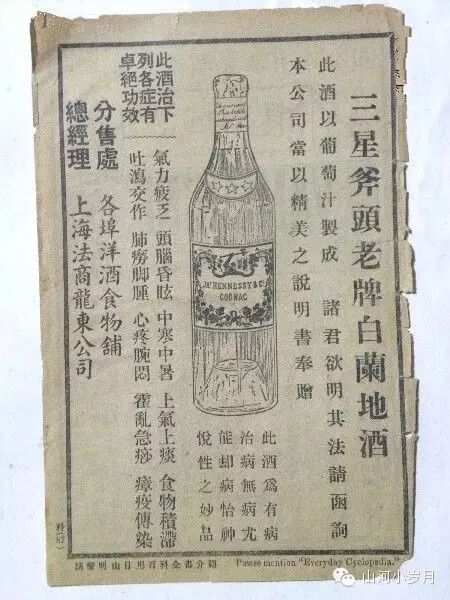 三星斧頭老牌白蘭地酒
此酒以葡萄汁製成 諸君欲明其法請函詢
本公司當以精美之說明書奉贈
JAs HENNESSY & Co
COGNAC
此酒爲有病
治病無病尤
能却病怡神
悅性之妙品
此酒治下
列各症有
卓絕功效
氣力疲乏 頭腦昏眩 中寒中暑 上氣上痰 食物積滯
吐瀉交作 肺癆脚腫 心疼腕悶 霍亂急痧 瘴疫傳染
分售處 各埠洋酒食物舖
總經理 上海法商龍東公司
請聲明由日用百科全書介紹
Please mention "Everyday Cyclopedia."
山河小岁月